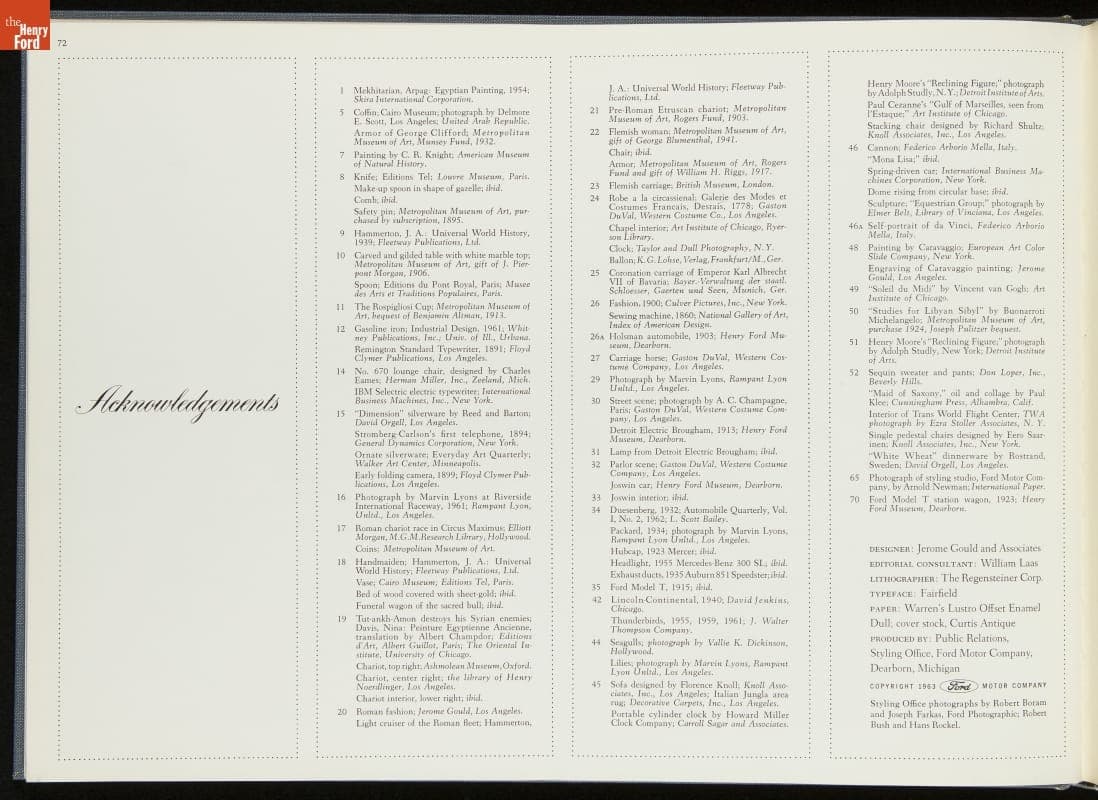 the
Henry
Ford
72
Acknowledgements
1 Mekhitarian, Arpag: Egyptian Painting, 1954;
Skira International Corporation.
5 Coffin; Cairo Museum; photograph by Delmore
E. Scott, Los Angeles; United Arab Republic.
Armor of George Clifford; Metropolitan
Museum of Art, Munsey Fund, 1932.
7 Painting by C. R. Knight; American Museum
of Natural History.
8 Knife; Editions Tel; Louvre Museum, Paris.
Make-up spoon in shape of gazelle; ibid.
Comb; ibid.
Safety pin; Metropolitan Museum of Art, pur-
chased by subscription, 1895.
9 Hammerton, J. A.: Universal World History,
1939; Fleetway Publications, Ltd.
10 Carved and gilded table with white marble top;
Metropolitan Museum of Art, gift of J. Pier-
pont Morgan, 1906.
Spoon; Editions du Pont Royal, Paris; Musee
des Arts et Traditions Populaires, Paris.
11 The Rospigliosi Cup; Metropolitan Museum of
Art, bequest of Benjamin Altman, 1913.
12 Gasoline iron; Industrial Design, 1961; Whit-
ney Publications, Inc.; Univ. of Ill., Urbana.
Remington Standard Typewriter, 1891; Floyd
Clymer Publications, Los Angeles.
14 No. 670 lounge chair, designed by Charles
Eames; Herman Miller, Inc., Zeeland, Mich.
IBM Selectric electric typewriter; International
Business Machines, Inc., New York.
15 "Dimension" silverware by Reed and Barton;
David Orgell, Los Angeles.
Stromberg-Carlson's first telephone, 1894;
General Dynamics Corporation, New York.
Ornate silverware; Everyday Art Quarterly;
Walker Art Center, Minneapolis.
Early folding camera, 1899; Floyd Clymer Pub-
lications, Los Angeles.
16 Photograph by Marvin Lyons at Riverside
International Raceway, 1961; Rampant Lyon,
Unltd., Los Angeles.
17 Roman chariot race in Circus Maximus; Elliott
Morgan, M.G.M. Research Library, Hollywood.
Coins; Metropolitan Museum of Art.
18 Handmaiden; Hammerton, J. A.: Universal
World History; Fleetway Publications, Ltd.
Vase; Cairo Museum; Editions Tel, Paris.
Bed of wood covered with sheet-gold; ibid.
Funeral wagon of the sacred bull; ibid.
19 Tut-ankh-Amon destroys his Syrian enemies;
Davis, Nina: Peinture Egyptienne Ancienne,
translation by Albert Champdor; Editions
d'Art, Albert Guillot, Paris; The Oriental In-
stitute, University of Chicago.
Chariot, top right; Ashmolean Museum, Oxford.
Chariot, center right; the library of Henry
Noerdlinger, Los Angeles.
Chariot interior, lower right; ibid.
20 Roman fashion; Jerome Gould, Los Angeles.
Light cruiser of the Roman fleet; Hammerton,
J. A.: Universal World History; Fleetway Pub-
lications, Ltd.
21 Pre-Roman Etruscan chariot; Metropolitan
Museum of Art, Rogers Fund, 1903.
22 Flemish woman; Metropolitan Museum of Art,
gift of George Blumenthal, 1941.
Chair; ibid.
Armor; Metropolitan Museum of Art, Rogers
Fund and gift of William H. Riggs, 1917.
23 Flemish carriage; British Museum, London.
24 Robe a la circassienal; Galerie des Modes et
Costumes Francais, Desrais, 1778; Gaston
DuVal, Western Costume Co., Los Angeles.
Chapel interior; Art Institute of Chicago, Ryer-
son Library.
Clock; Taylor and Dull Photography, N. Y.
Ballon; K. G. Lohse, Verlag, Frankfurt/M., Ger.
25 Coronation carriage of Emperor Karl Albrecht
VII of Bavaria; Bayer. Verwaltung der staatl.
Schloesser, Gaerten und Seen, Munich, Ger.
26 Fashion, 1900; Culver Pictures, Inc., New York.
Sewing machine, 1860; National Gallery of Art,
Index of American Design.
26A Holsman automobile, 1903; Henry Ford Mu-
seum, Dearborn.
27 Carriage horse; Gaston DuVal, Western Cos-
tume Company, Los Angeles.
29 Photograph by Marvin Lyons, Rampant Lyon
Unltd., Los Angeles.
30 Street scene; photograph by A. C. Champagne,
Paris; Gaston DuVal, Western Costume Com-
pany, Los Angeles.
Detroit Electric Brougham, 1913; Henry Ford
Museum, Dearborn.
31 Lamp from Detroit Electric Brougham; ibid.
32 Parlor scene; Gaston DuVal, Western Costume
Company, Los Angeles.
Joswin car, Henry Ford Museum, Dearborn.
33 Joswin interior; ibid.
34 Duesenberg, 1932; Automobile Quarterly, Vol.
I, No. 2, 1962; L. Scott Bailey.
Packard, 1934; photograph by Marvin Lyons,
Rampant Lyon Unltd., Los Angeles.
Hubcap, 1923 Mercer; ibid.
Headlight, 1955 Mercedes-Benz 300 SL; ibid.
Exhaust ducts, 1935 Auburn 851 Speedster; ibid.
35 Ford Model T, 1915; ibid.
42 Lincoln-Continental, 1940; David Jenkins,
Chicago.
Thunderbirds, 1955, 1959, 1961; J. Walter
Thompson Company.
44 Seagulls; photograph by Vallie K. Dickinson,
Hollywood.
Lilies; photograph by Marvin Lyons, Rampant
Lyon Unltd., Los Angeles.
45 Sofa designed by Florence Knoll; Knoll Asso-
ciates, Inc., Los Angeles; Italian Jungla area
rug; Decorative Carpets, Inc., Los Angeles.
Portable cylinder clock by Howard Miller
Clock Company; Carroll Sagar and Associates.
Henry Moore's "Reclining Figure;" photograph
by Adolph Studly, N. Y.; Detroit Institute of Arts.
Paul Cezanne's "Gulf of Marseilles, seen from
l'Estaque;" Art Institute of Chicago.
Stacking chair designed by Richard Shultz;
Knoll Associates, Inc., Los Angeles.
46 Cannon; Federico Arborio Mella, Italy.
"Mona Lisa;" ibid.
Spring-driven car; International Business Ma-
chines Corporation, New York.
Dome rising from circular base; ibid.
Sculpture; "Equestrian Group;" photograph by
Elmer Belt, Library of Vinciana, Los Angeles.
46A Self-portrait of da Vinci, Federico Arborio
Mella, Italy.
48 Painting by Caravaggio; European Art Color
Slide Company, New York.
Engraving of Caravaggio painting; Jerome
Gould, Los Angeles.
49 "Soleil du Midi" by Vincent van Gogh; Art
Institute of Chicago.
50 "Studies for Libyan Sibyl" by Buonarroti
Michelangelo; Metropolitan Museum of Art,
purchase 1924, Joseph Pulitzer bequest.
51 Henry Moore's "Reclining Figure;" photograph
by Adolph Studly, New York; Detroit Institute
of Arts.
52 Sequin sweater and pants; Don Loper, Inc.,
Beverly Hills.
"Maid of Saxony," oil and collage by Paul
Klee; Cunningham Press, Alhambra, Calif.
Interior of Trans World Flight Center, TWA
photograph by Ezra Stoller Associates, N. Y.
Single pedestal chairs designed by Eero Saar-
inen; Knoll Associates, Inc., New York.
"White Wheat" dinnerware by Rostrand,
Sweden; David Orgell, Los Angeles.
65 Photograph of styling studio, Ford Motor Com-
pany, by Arnold Newman; International Paper.
70 Ford Model T station wagon, 1923; Henry
Ford Museum, Dearborn.
DESIGNER: Jerome Gould and Associates
EDITORIAL CONSULTANT: William Laas
LITHOGRAPHER: The Regensteiner Corp.
TYPEFACE: Fairfield
PAPER: Warren's Lustro Offset Enamel
Dull; cover stock, Curtis Antique
PRODUCED BY: Public Relations,
Styling Office, Ford Motor Company,
Dearborn, Michigan
COPYRIGHT 1963 Ford MOTOR COMPANY
Styling Office photographs by Robert Boram
and Joseph Farkas, Ford Photographic; Robert
Bush and Hans Rockel.